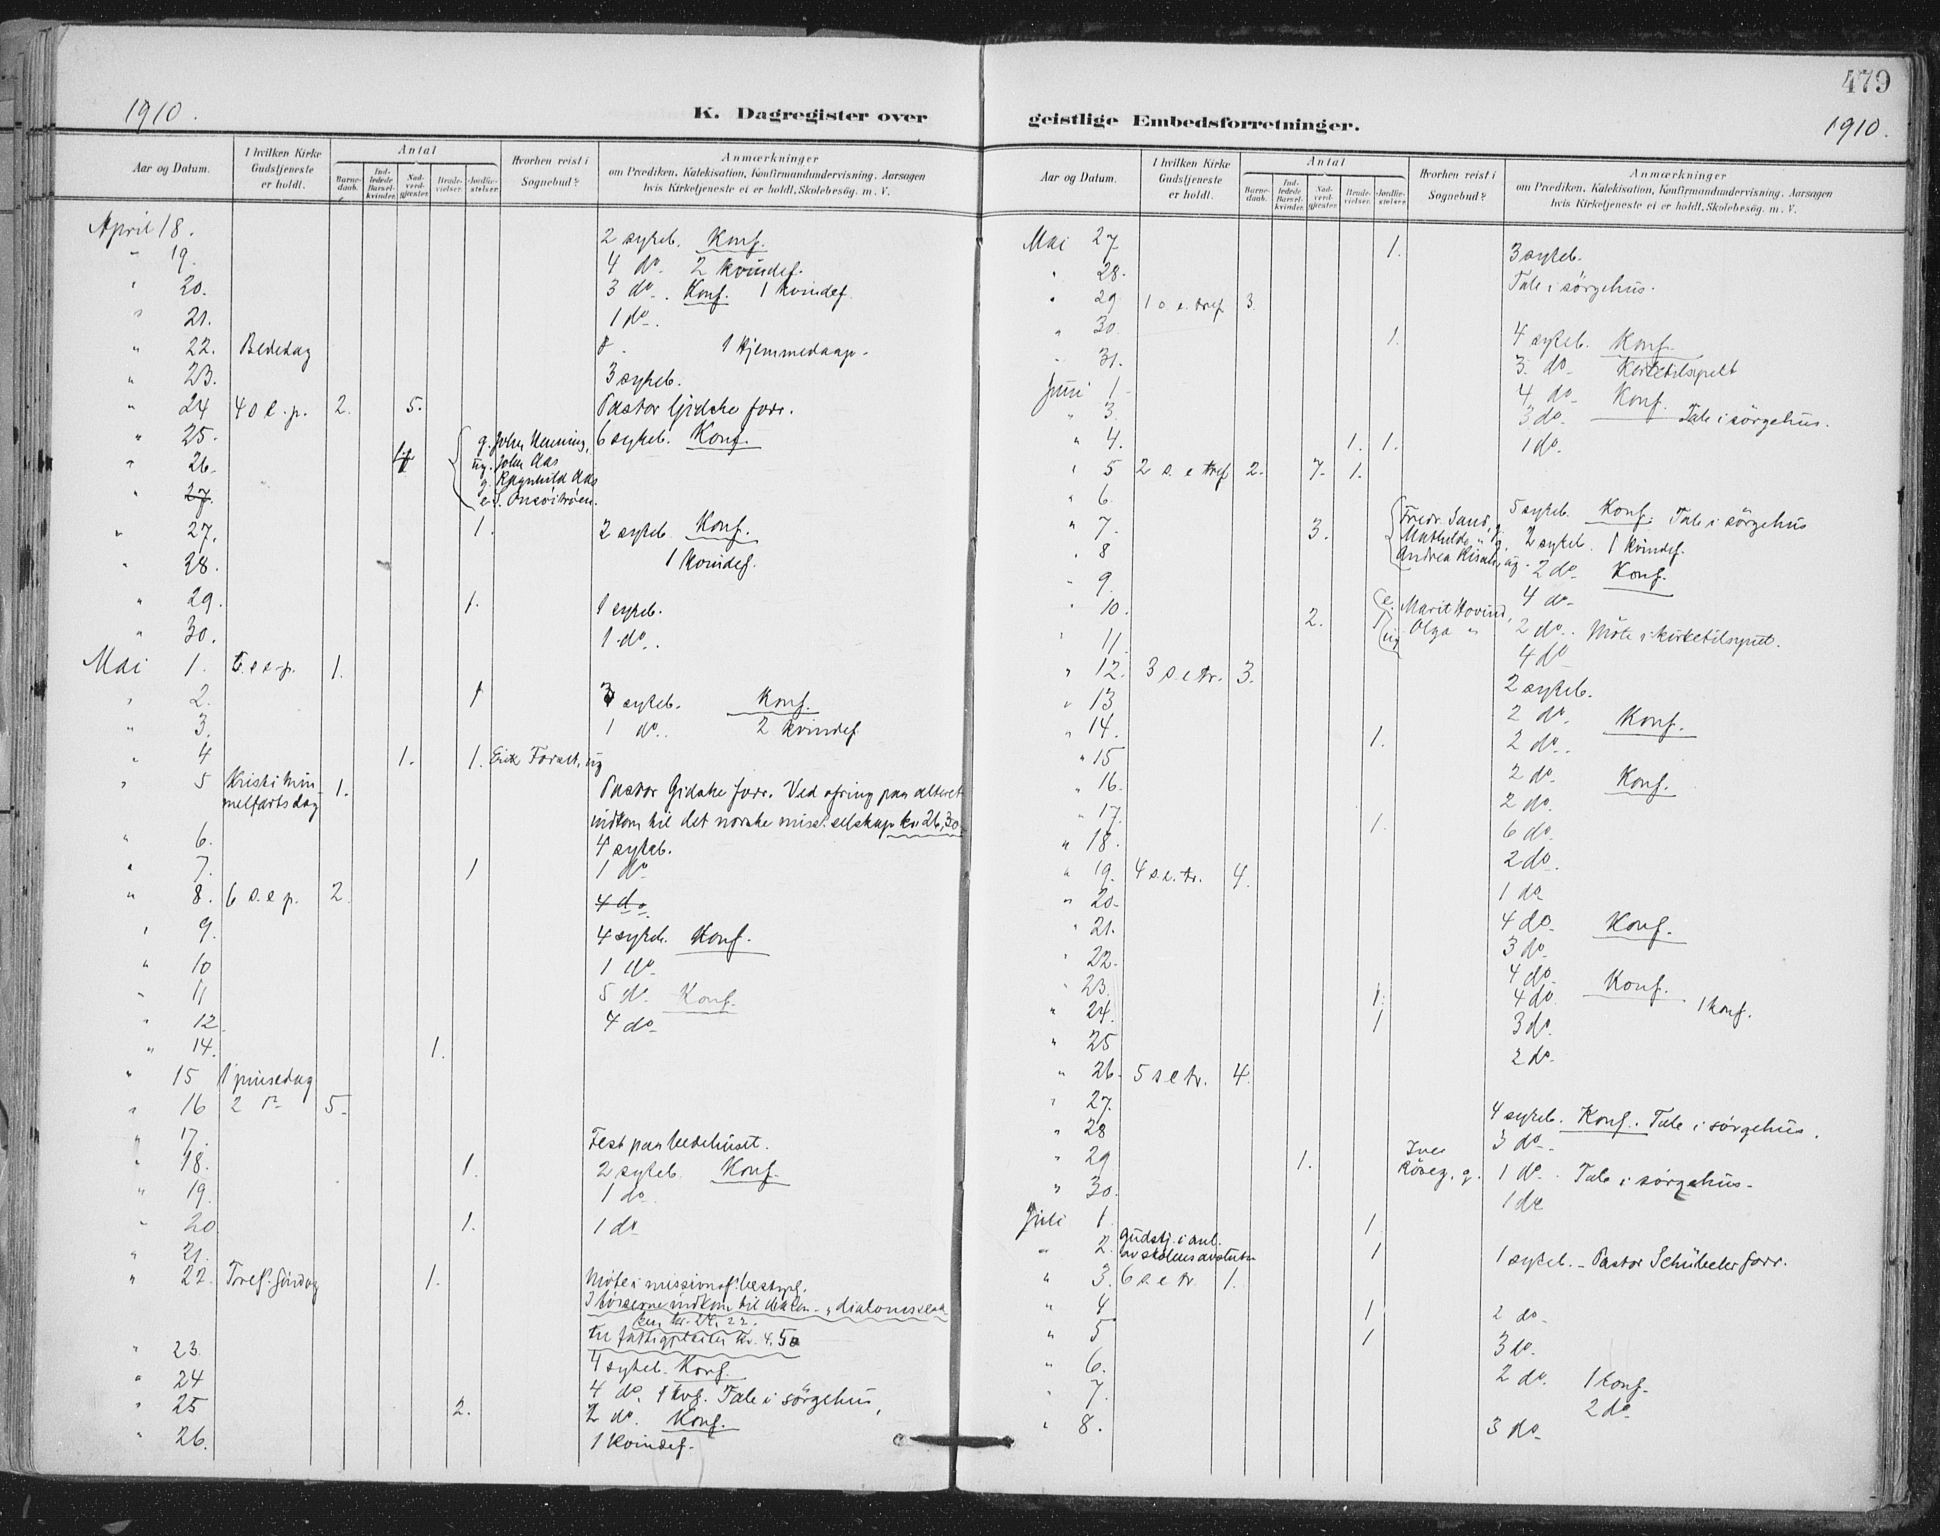 479
1910.
K. Dagregister over
geistlige Embedsforretninger.
1910.
Aar og Datum.
I hvilken Kirke Gudstjeneste er holdt.
Antal
Barnedaab.
Indledede Barselkvinder.
Nadverdgjester.
Brudevielser.
Jordfæstelser.
Hvorhen reist i Sognebud?
Anmærkninger
om Prædiken, Katekisation, Konfirmandundervisning, Aarsagen
hvis Kirketjeneste ei er holdt, Skolebesøg. m. V.
April 18. 2 sykeb. Konf.
" 19. 4 do. 2 kvindef.
" 20. 3 do. Konf. 1 kvindef.
" 21. 1 do.
" 22. Bededag 1 hjemmedaap.
" 23. 3 sykeb.
" 24 4 s e. p. 2. 5. Pastor Gidske forr.
" 25. g. Johs Henning, 6 sykeb. Konf.
" 26. 4 ug. John Aas
g. Ragnhild Aas
" 27.
" 27. 1. 2 sykeb. Konf.
" 28. 1 kvindef.
" 29. 1. 1 sykeb.
" 30. 1 do.
Mai 1. 5. s e p. 1.
" 2. 1 3 sykeb. Konf.
" 3. 1 do. 2 kvindef
" 4 1. 1. ug
" 5 Kristi him-
melfartsdag 1. Pastor Gidske forr. Ved ofring paa alteret
indkom til det norske miss. selskap kr 26,30.
" 6. 4 sykeb.
" 7. 1 1 do
" 8. 6 s. e p. 2. 4 do.
" 9. 4 sykeb. Konf.
" 10 1 do.
" 11 5 do. Konf.
" 12. 4 do
" 14. 1.
" 15 1 pinsedag
" 16 2 do 5.
" 17. Fest paa bedehuset.
" 18. 1. 2 sykeb. Konf.
" 19. 1 do.
" 20 1. 1 do
" 21.
" 22. Tref. søndag 1. Møte i missionsf. bestyr.
I bøsserne indkom til
kr. 24,22.
kr. 4.50
" 23. 4 sykeb. Konf.
" 24 4 do. 1 kvf. Tale i sørgehus,
" 25 2. 2 do. Konf.
" 26. 1 kvindef.
Aar og Datum.
I hvilken Kirke Gudstjeneste er holdt.
Antal
Barnedaab.
Indledede Barselkvinder.
Nadverdgjester.
Brudevielser.
Jordfæstelser.
Hvorhen reist i Sognebud?
Anmærkninger
om Prædiken, Katekisation, Konfirmandundervisning, Aarsagen
hvis Kirketjeneste ei er holdt, Skolebesøg. m. V.
Mai 27 1. 3 sykeb.
" 28. Tale i sørgehus.
" 29 1 s. e. tref 3.
" 30. 1. 4 sykeb. Konf.
" 31. 3. do. Kirketilsynet
Juni 1 4 do. Konf.
" 3. 3 do. Tale i sørgehus.
" 4. 1. 1. 1 do.
" 5 2 s. e tref 2. 7. 1.
" 6. 5 sykeb. Konf. Tale i sørgehus
" 7. 3. Fredr. Sand, g. 2 sykeb. 1 kvindef.
" 8 Mathilde " g. 2 do. Konf.
Andrea ug.
" 9. 4 do.
" 10. 2. e. Marit Hovind, 2 do. Møte i kirketilsynet.
" 11. ug. Olga " 4 do
" 12. 3 s. e tr. 3. 2 sykeb.
" 13 2 do. Konf.
" 14. 1. 2 do.
" 15 2 do. Konf.
" 16. 2 do.
" 17. 1. 6 do.
" 18. 2 do.
" 19. 4 s. e. tr. 4. 1 do
" 20. 4 do. Konf.
" 21. 3 do.
" 22. 4 do. Konf.
" 23. 1. 4 do. 1 konf.
" 24. 1 3 do.
" 25 2 do.
" 26. 5 s e tr. 4.
" 27. 4 sykeb. Konf. Tale i sørgehus.
" 28 3 do.
" 29 1. g. 1 do. Tale i sørgehus.
" 30. 1 do
Juli 1. 1
" 2. Gudstj. i anl.
av skolens avslutn 1 1 sykeb. Pastor Schübeler forr.
" 3. 6 s e tr. 1.
" 4 1 2 do.
" 5 1 3 do.
" 6. 2 do. 1 konf.
" 7. 2 do.
" 8. 3 do.